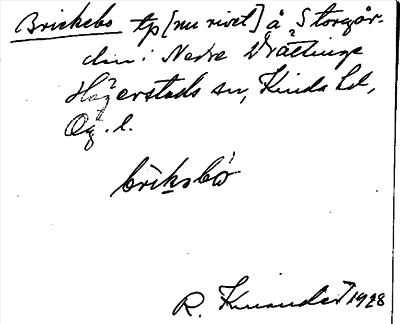 Brickebo tp [nu rivet] å Storgår-
den i Nedre Vrättinge
Hägerstads sn, Kinda hd,
Ög. l.
briksbo
R. 1928